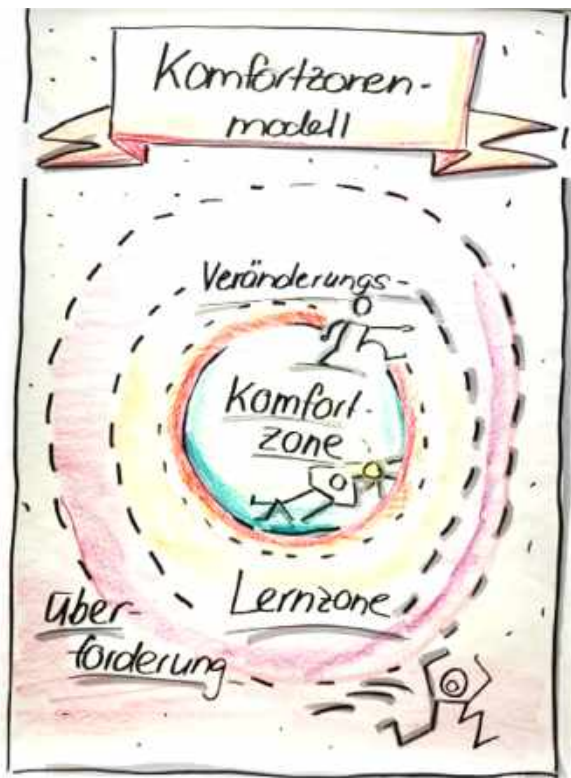 Komfortzonen-
modell
Veränderungs-
Komfort-
zone
Lernzone
Über-
forderung